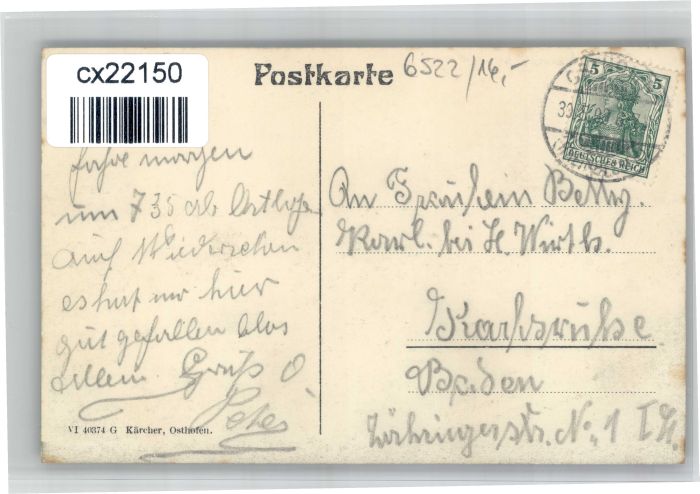 cx22150
Postkarte
6522/14,-
5 5
DEUTSCHES REICH
fahre morgen
um 7 35 ab Osthofen
auf Wiedersehen
es hat mir hier
gut gefallen
Gruß
Peter
An Fräulein Betty
Karl. bei H. Wirth.
Karlsruhe
Baden
Zähringerstr. No. 1
VI 40374 G Kärcher, Osthofen.